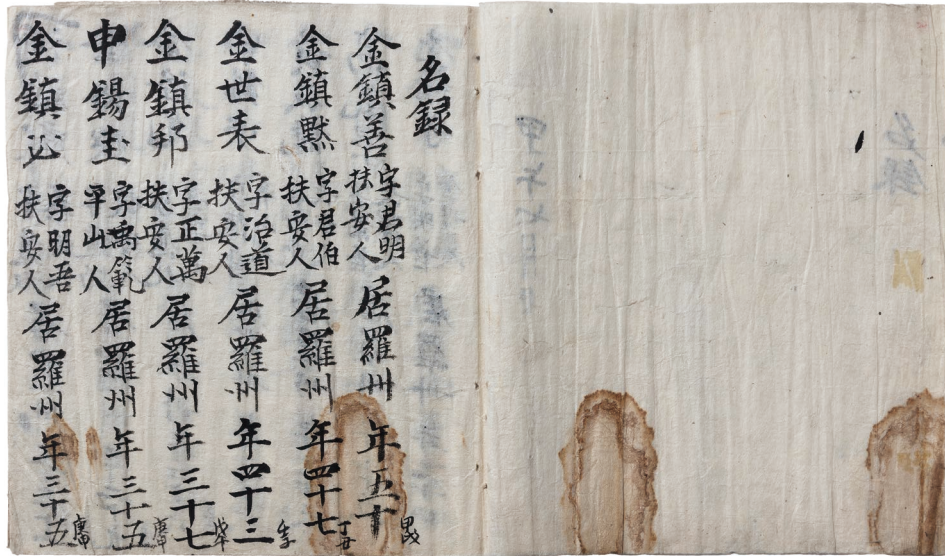 名録
金鎮善 字君明 扶安人 居羅州 年五十 甲戌
金鎮默 字君伯 扶安人 居羅州 年四十七 丁丑
金世表 字治道 扶安人 居羅州 年四十三
金鎮邦 字正萬 扶安人 居羅州 年三十七
申錫圭 字禹範 平山人 居羅州 年三十五
金鎮必 字明吾 扶安人 居羅州 年三十五